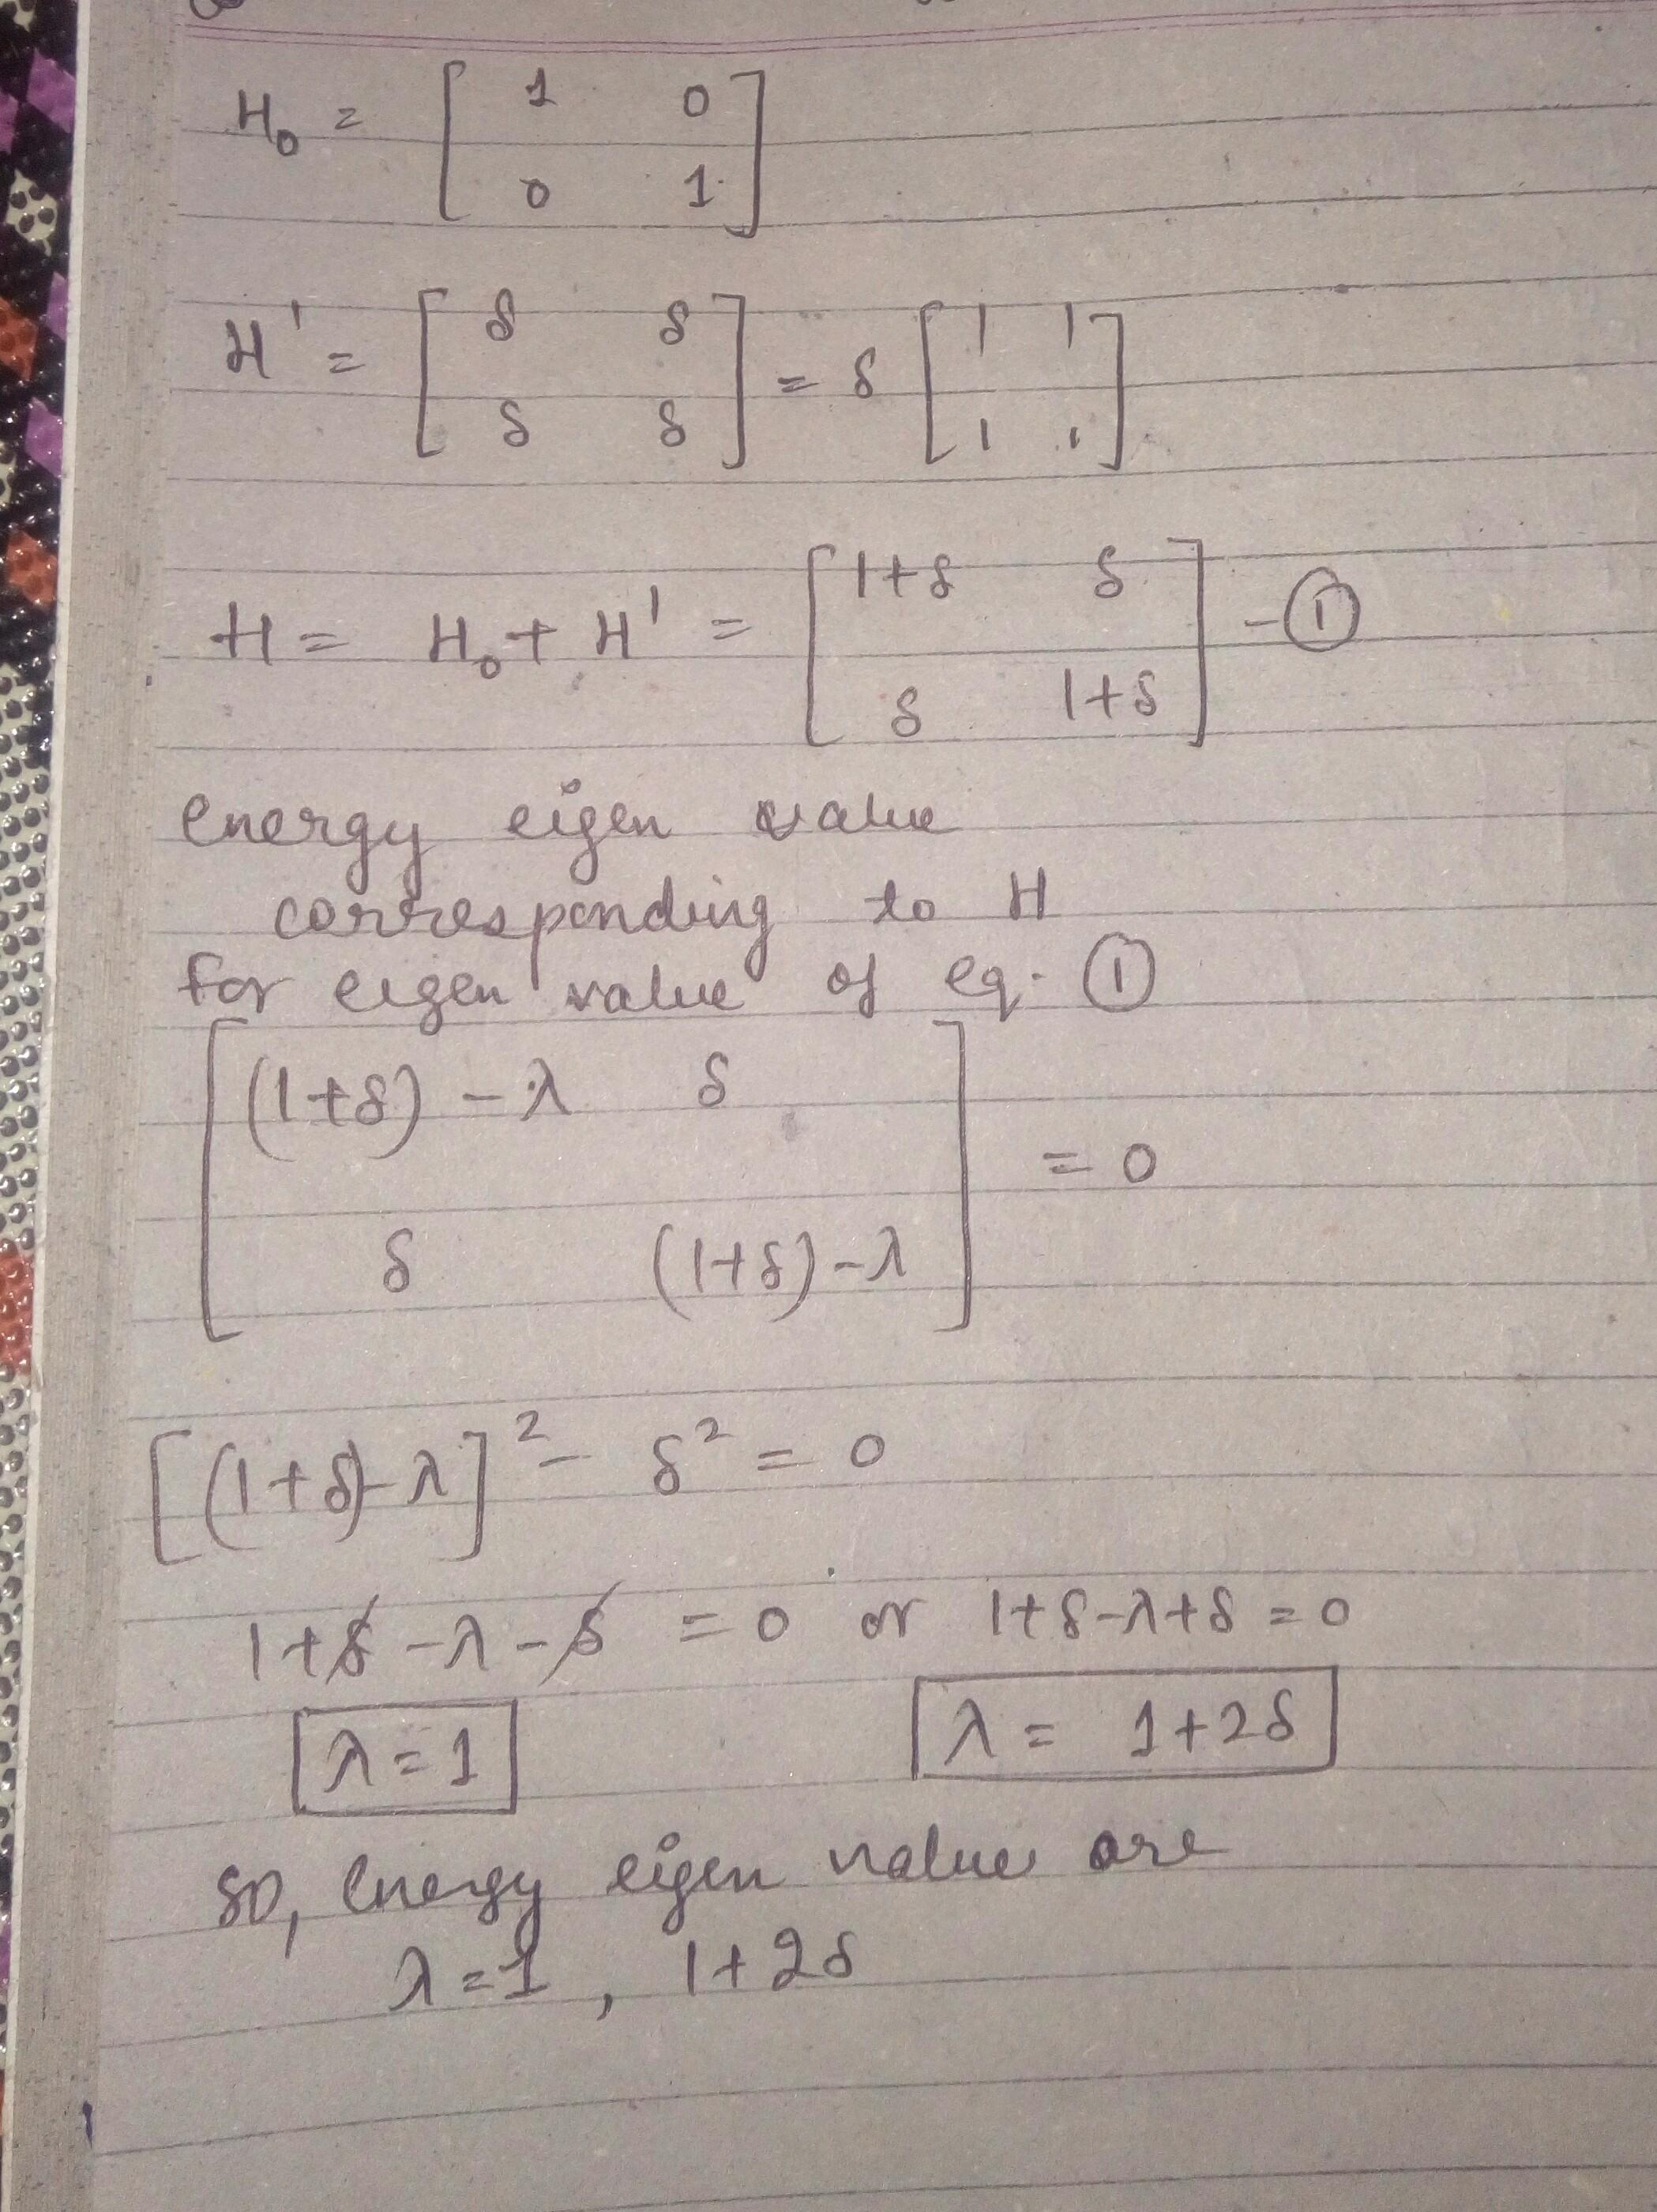 H₀ = [ 1 0
0 1 ]
H' = [ δ δ
δ δ ] = δ [ 1 1
1 1 ]
H = H₀ + H' = [ 1+δ δ
δ 1+δ ] - ①
energy eigen value
corresponding to H
for eigen value of eq. ①
[ (1+δ) - λ δ
δ (1+δ) - λ ] = 0
[(1+δ)-λ]² - δ² = 0
1+δ - λ - δ = 0 or 1+δ-λ+δ = 0
λ = 1 λ = 1+2δ
so, energy eigen value are
λ = 1 , 1+2δ